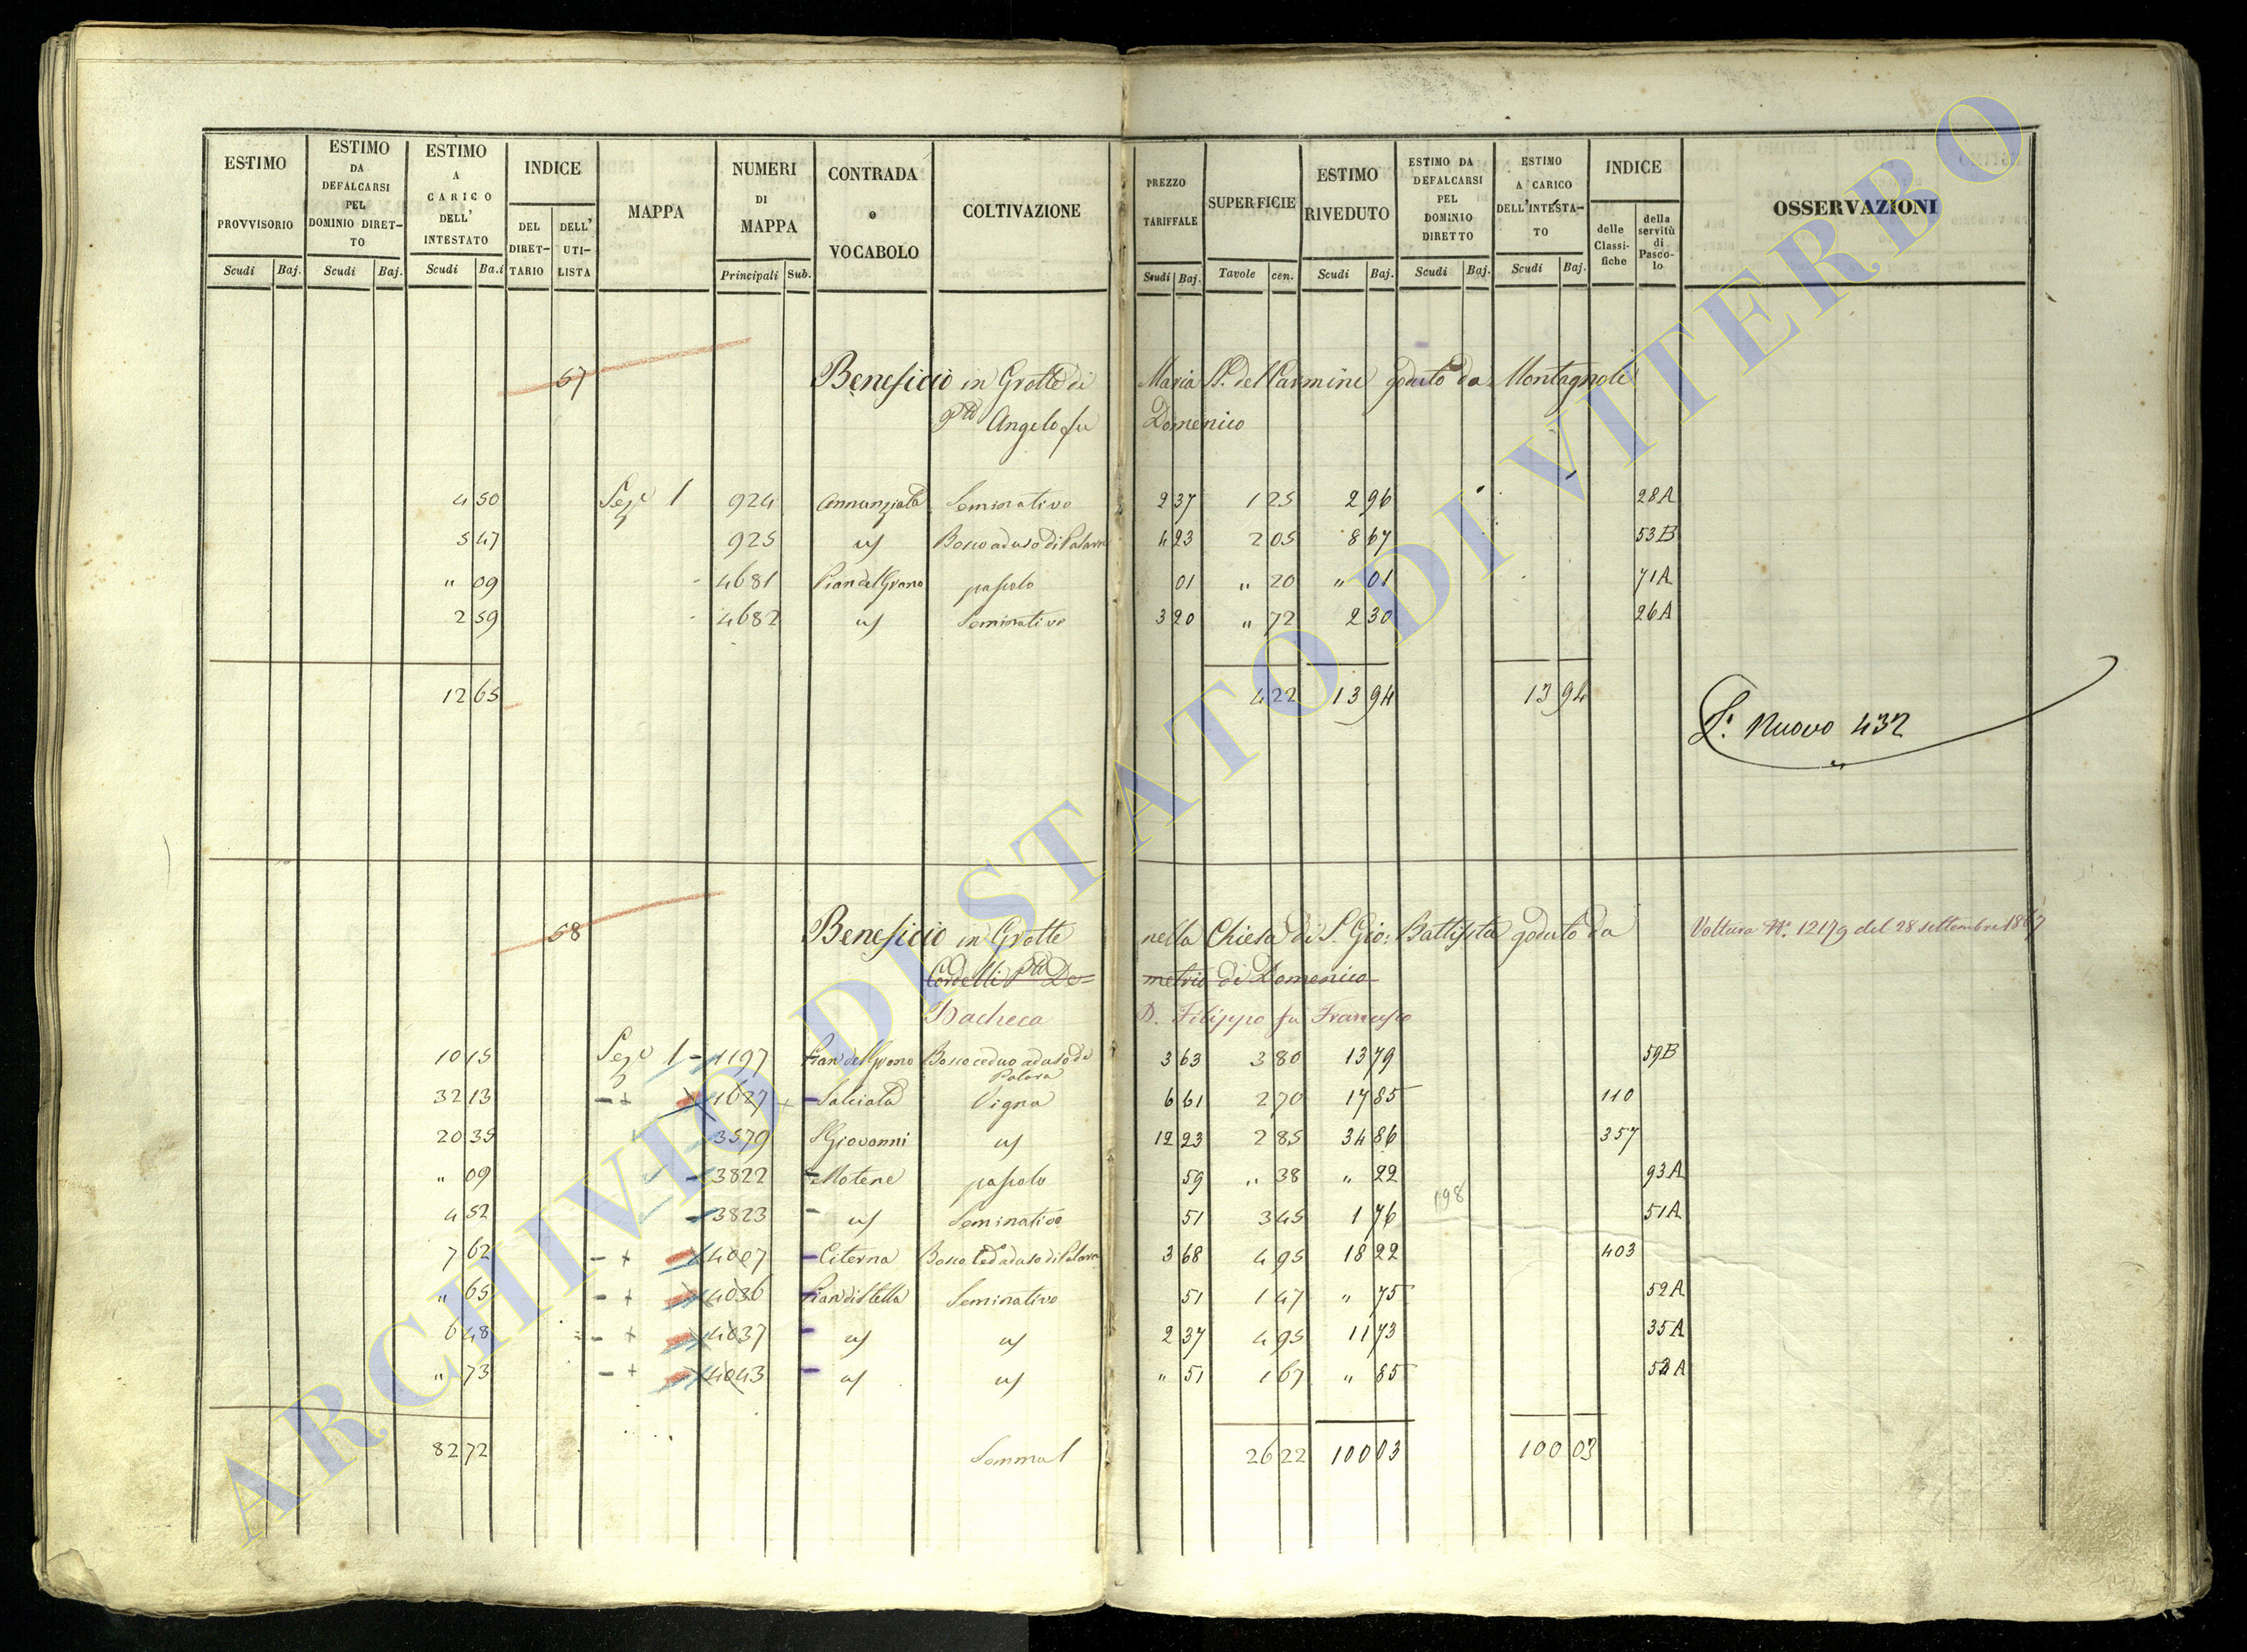 ESTIMO PROVVISORIO | ESTIMO DA DEFALCARSI PEL DOMINIO DIRET-TO | ESTIMO A CARICO DELL' INTESTATO | INDICE | MAPPA | NUMERI DI MAPPA | CONTRADA o VOCABOLO | COLTIVAZIONE | PREZZO TARIFFALE | SUPERFICIE | ESTIMO RIVEDUTO | ESTIMO DA DEFALCARSI PEL DOMINIO DIRETTO | ESTIMO A CARICO DELL'INTESTA-TO | INDICE | OSSERVAZIONI
DEL DIRET-TARIO | DELL' UTI-LISTA | delle Classi-fiche | della servitù di Pasco-lo
Scudi | Baj. | Scudi | Baj. | Scudi | Ba.i | Principali | Sub. | Scudi | Baj. | Tavole | cen. | Scudi | Baj. | Scudi | Baj. | Scudi | Baj.
57 Beneficio in Grotte di Maria SS. del Carmine goduto da Montagnole
Angelo fu Domenico
4 50 | Seze 1 | 924 | Annunziata | Seminativo | 2 37 | 1 25 | 2 96 | 28A
5 47 | 925 | us | Bosco ad uso di Palara | 4 23 | 2 05 | 8 67 | 53B
" 09 | 4681 | Pian del Grano | pascolo | 01 | " 20 | " 01 | 71A
2 59 | 4682 | us | Seminativo | 3 20 | " 72 | 2 30 | 26A
12 65 | 4 22 | 13 94 | 13 94
Nuovo 432
58 Beneficio in Grotte nella Chiesa di S. Gio: Battista goduto da | Voltura N°. 12179 del 28 settembre 1867
Cordelli Pte De=metrio di Domenico
Bacheca D. Filippo fu Francesco
10 15 | Seze 1 | 1197 | Pian del Grano | Bosco ceduo ad uso di Palara | 3 63 | 3 80 | 13 79 | 59B
32 13 | 1627 | Salciata | Vigna | 6 61 | 2 70 | 17 85 | 110
20 35 | 3579 | S Giovanni | us | 12 23 | 2 85 | 34 86 | 357
" 09 | 3822 | Motene | pascolo | 59 | " 38 | " 22 | 93A
198
4 52 | 3823 | us | Seminativo | 51 | 3 45 | 1 76 | 51A
7 62 | 4007 | Citerna | Bosco Ced° ad uso di Palara | 3 68 | 4 95 | 18 22 | 403
" 65 | 4036 | Pian di Stella | Seminativo | 51 | 1 47 | " 75 | 52A
6 48 | 4037 | us | us | 2 37 | 4 95 | 11 73 | 35A
" 73 | 4043 | us | us | " 51 | 1 67 | " 85 | 52A
82 72 | 26 22 | 100 03 | 100 03
ARCHIVIO DI STATO DI VITERBO